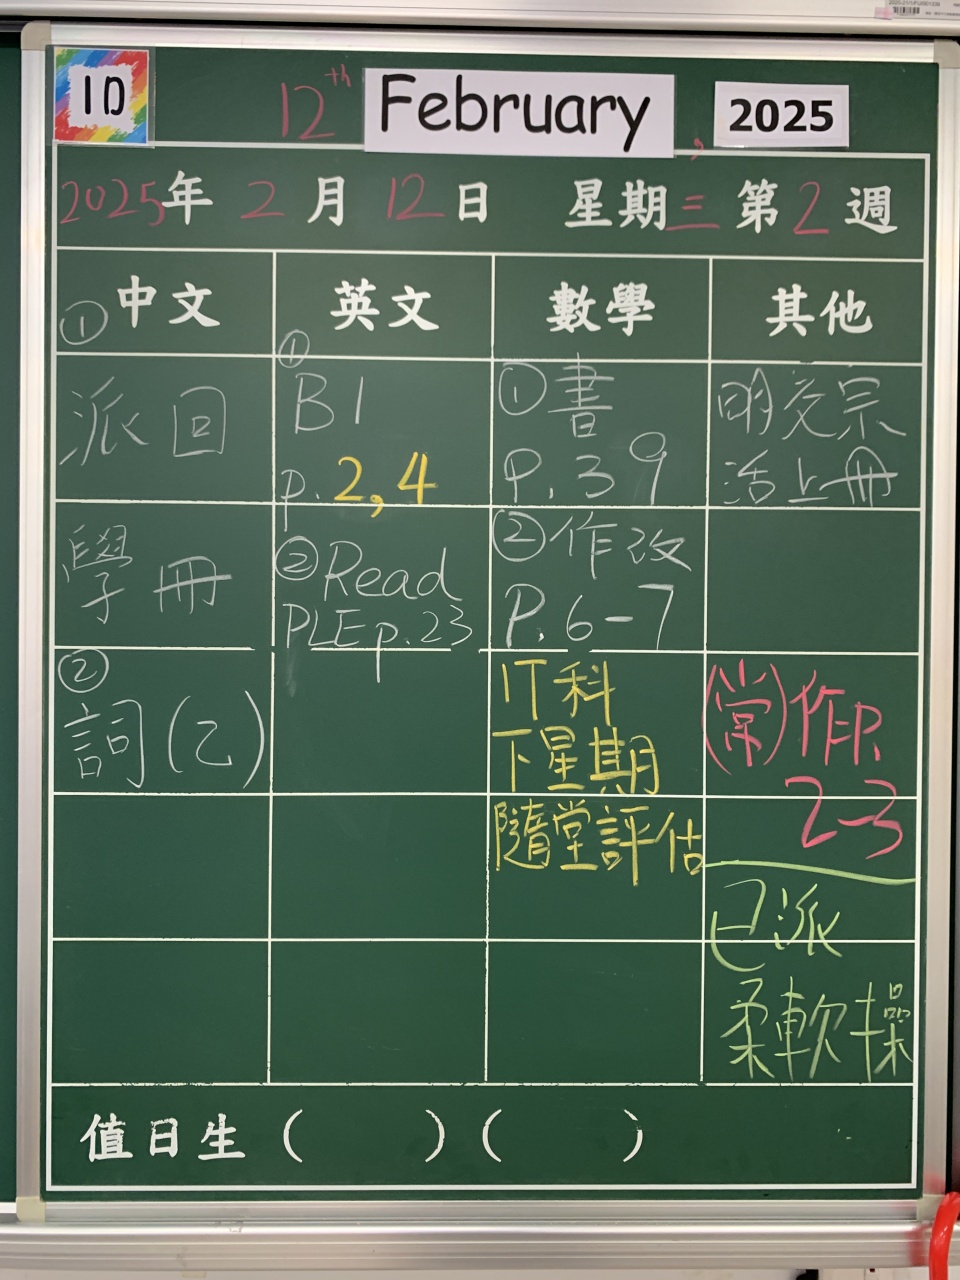 1D
12th February, 2025
2025年 2月 12日 星期三 第2週
中文 英文 數學 其他
① 派回
學冊
② 詞(乙)
① B1
p. 2, 4
② Read
PLE p.23
① 書
P. 39
② 作改
P. 6-7
IT科
下星期
隨堂評估
明交宗
活上冊
(常)作P.
2-3
已派
柔軟操
值日生 ( ) ( )